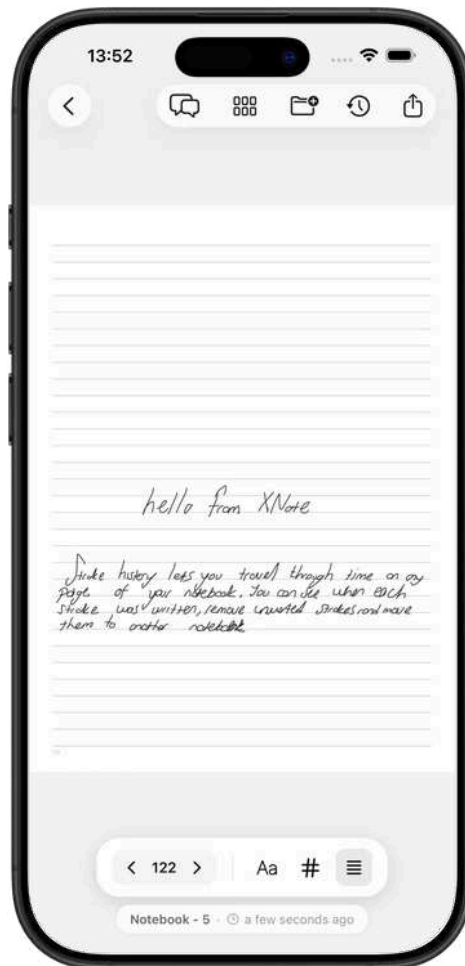 13:52
hello from XNote
Stroke history lets you travel through time on any
page of your notebook. You can see when each
stroke was written, remove unwanted strokes and move
them to another notebook
< 122 > Aa #
Notebook - 5 · a few seconds ago